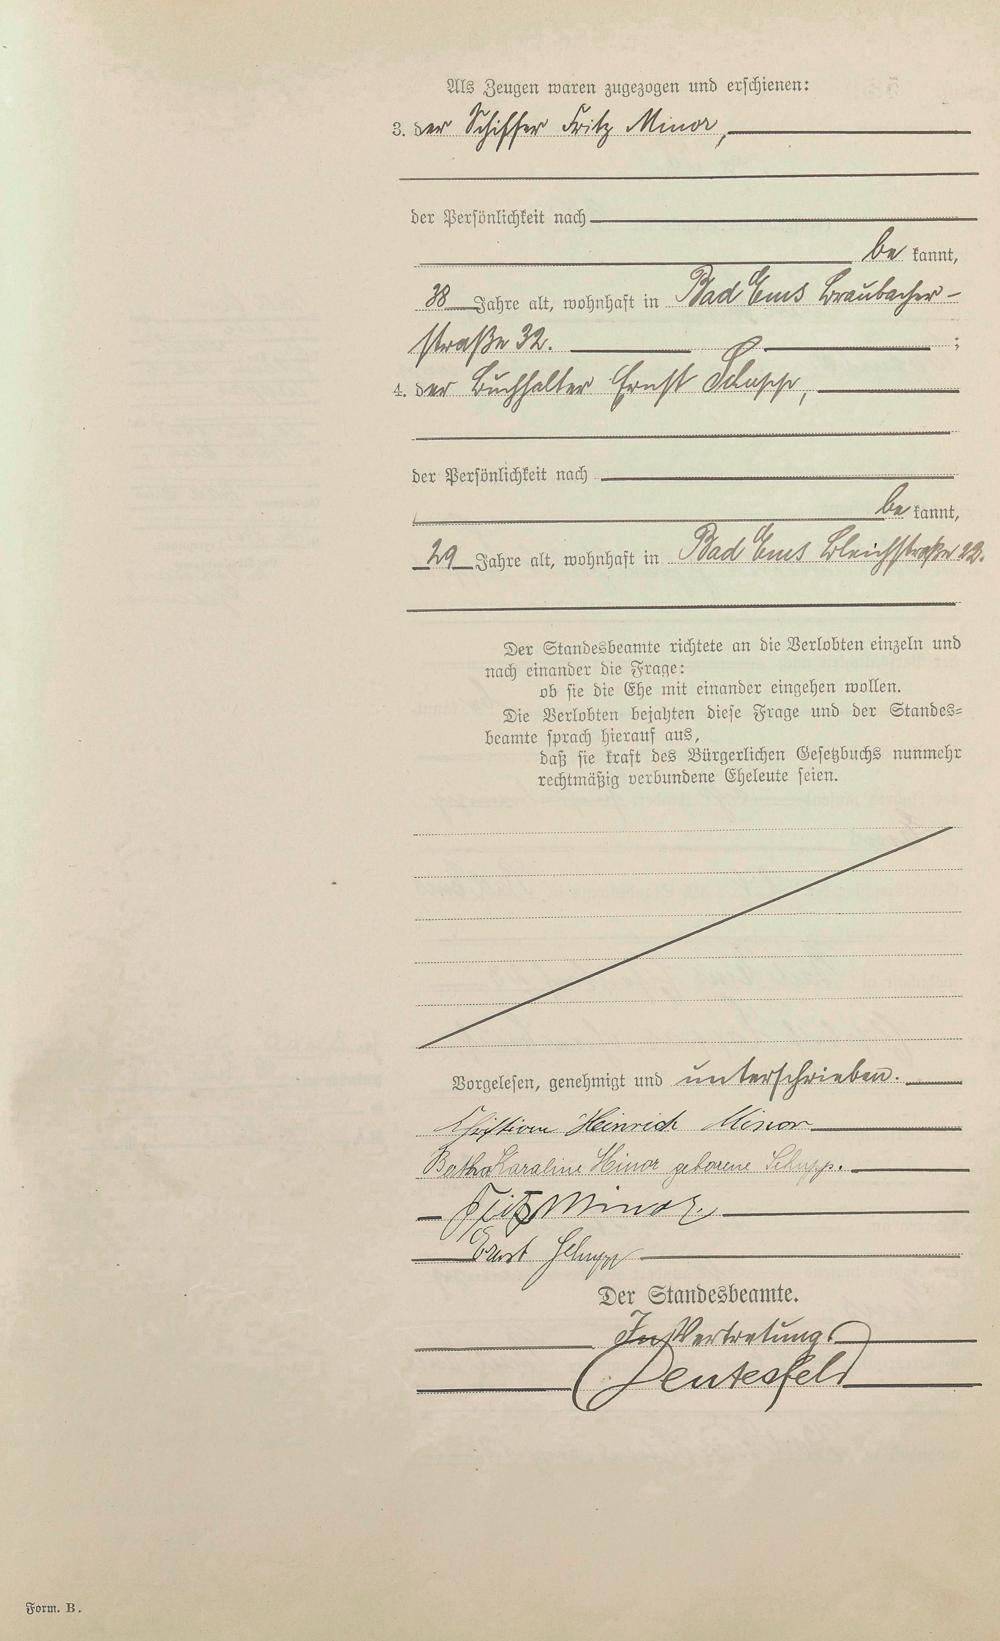 Als Zeugen waren zugezogen und erschienen:
3. der Schiffer Fritz Minor,
der Persönlichkeit nach
be kannt,
38 Jahre alt, wohnhaft in Bad Ems Braubacher-
straße 32. ;
4. der Buchhalter Ernst Schupp,
der Persönlichkeit nach
be kannt,
29 Jahre alt, wohnhaft in Bad Ems Bleichstraße 22.
Der Standesbeamte richtete an die Verlobten einzeln und
nach einander die Frage:
ob sie die Ehe mit einander eingehen wollen.
Die Verlobten bejahten diese Frage und der Standes=
beamte sprach hierauf aus,
daß sie kraft des Bürgerlichen Gesetzbuchs nunmehr
rechtmäßig verbundene Eheleute seien.
Vorgelesen, genehmigt und unterschrieben.
Christian Heinrich Minor
Bertha Karaline Minor geborene Schupp.
Fritz Minor
Ernst Schupp
Der Standesbeamte.
In Vertretung.